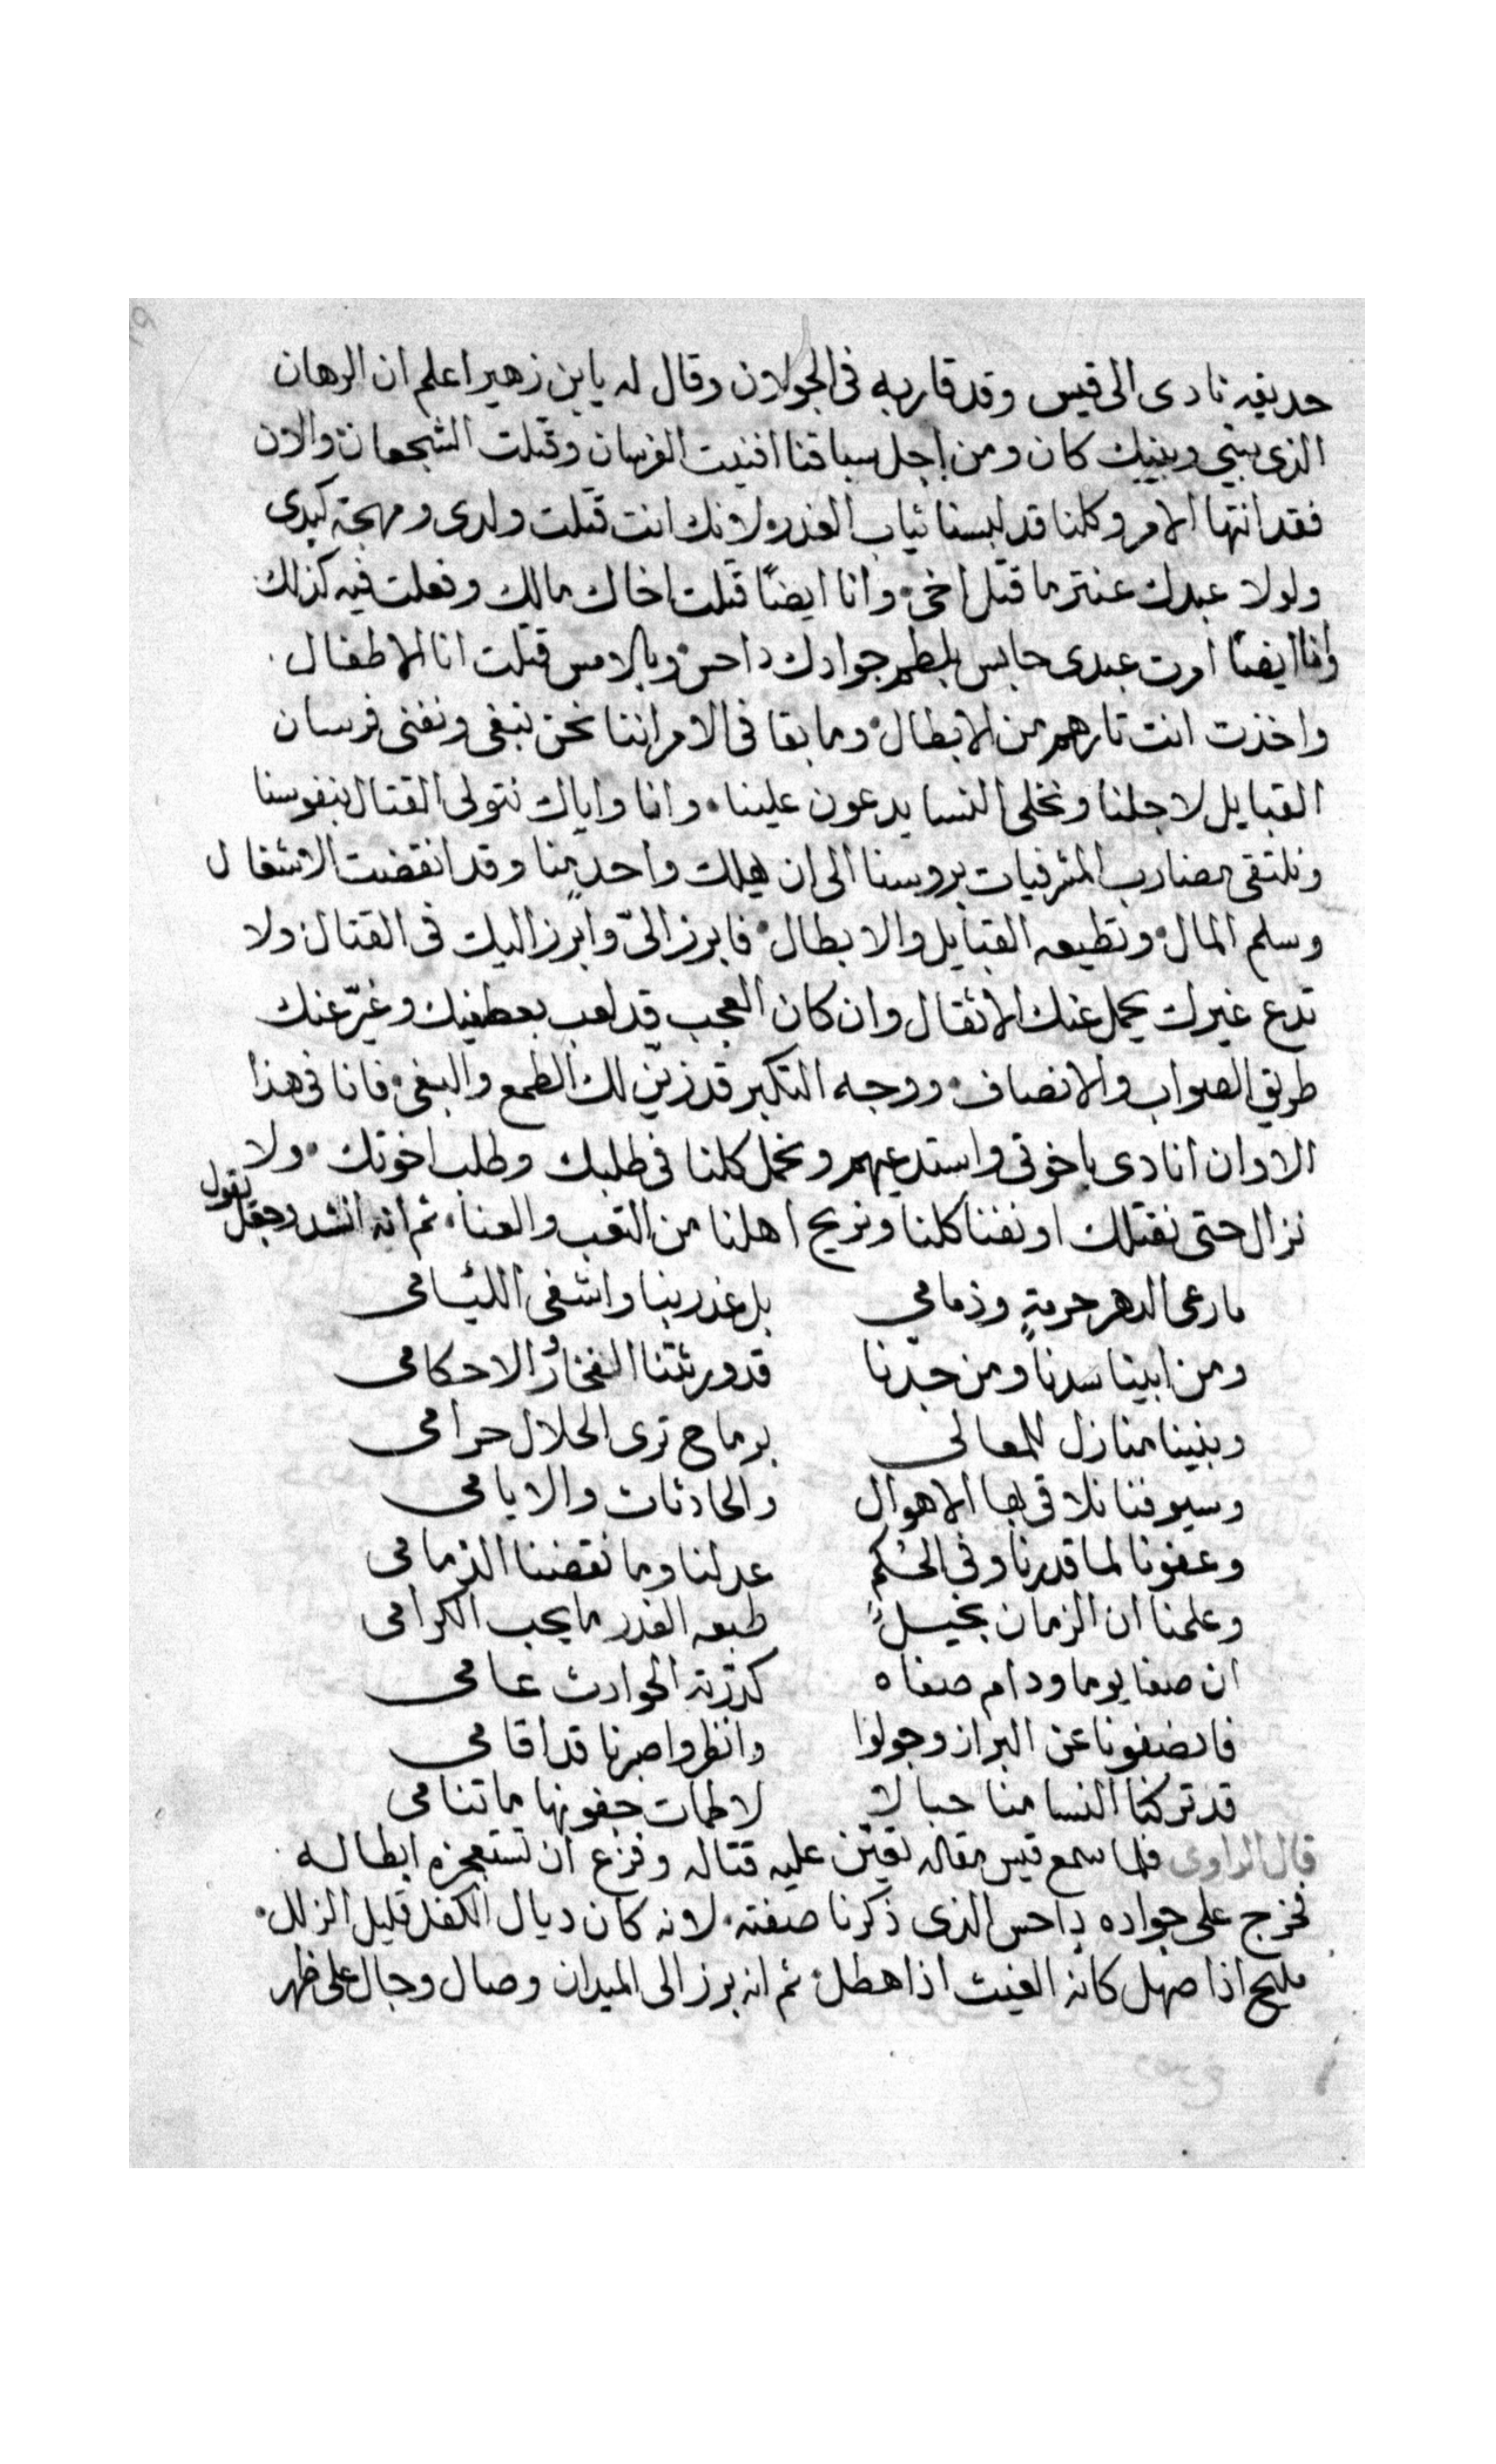 حديفه نادى الى قيس وقد قاربه فى الجولان وقال له يا بن زهير اعلم ان الرهان
الذى بينى وبينك كان ومن اجل سباقنا افنيت الفرسان وقتلت الشجعان والان
فقد انتها الامر وكلنا قد لبسنا ثياب الغدر ولانك انت قتلت ولدى ومهجة كبدى
ولولا عبدك عنتر ما قتل اخى وانا ايضًا قتلت اخاك مالك وفعلت فيه كذلك
وانا ايضًا امرت عبدى حابس بلطم جوادك داحس وبالامس قتلت انا الاطفال
واخذت انت تارهم من الابطال وما بقا فى الامر اننا نحن نبغى ونفنى فرسان
القبايل لاجلنا ونخلى النسا يدعون علينا وانا واياك نتولى القتال بنفوسنا
ونلتقى مضارب المشرفيات بروسنا الى ان يهلك واحد منا وقد انقضت الاشغال
وسلم المال وتطيعه القبايل والابطال فابرز الىّ وابرز اليك فى القتال ولا
تدع غيرك يحمل عنك الاثقال وان كان العجب قد لعب بعطفيك وغيّر عنك
طريق الصواب والانصاف ووجه التكبر قد زيّن لك الطمع والبغى فانا فى هذا
الاوان انادى ياخوتى واستدعيهم ونحمل كلنا فى طلبك وطلب اخوتك ولا
نزال حتى نقتلك او نفنا كلنا ونريح اهلنا من التعب والعنا ثم انه انشد وجعل يقول
ما رعى الدهر حرمةٍ وذمامى بل غدر بنا واشفى اللئيامى
ومن ابينا سدنا ومن جدّنا قد ورثتنا الفخارُ الاحكامى
وبنينا منازل للمعالى برماح ترى الحلال حرامى
وسيوفنا نلاقى بها الاهوال والحادثات والايامى
وعفونا لما قدرنا وفى الحُكمٍ عدلنا وما نقضنا الذمامى
وعلمنا ان الزمان بخيلٌ طبعه الغدر ما يحب الكرامى
ان صفا يوما ودام صفاه كدّرته الحوادث عامى
فانصفونا عن البراز وجولوا وانظروا صبرنا قد اقامى
قد تركنا النسا منا حبالا لاطمات جفونها ما تنامى
قال الراوى فلما سمع قيس مقاله تعيّن عليه قتاله وفزع ان تستعجزه ابطاله
فخرج على جواده داحس الذى ذكرنا صفته لانه كان ديال الكفل قليل الزلل
مليح اذا صهل كانه الغيث اذا هطل ثم انه برز الى الميدان وصال وجال على ظهر